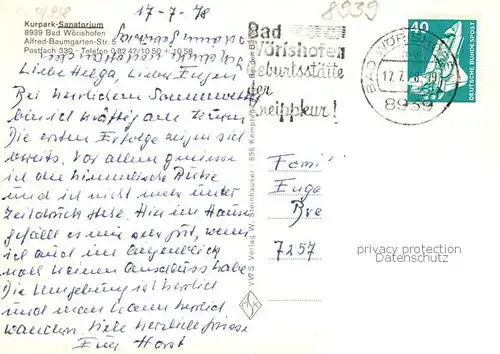 17-7-78
8939
Kurpark-Sanatorium
8939 Bad Wörishofen
Alfred-Baumgarten-Str.
Postfach 330 - Telefon 0 82 47/10 59 + 10 58
Bad
Wörishofen
Geburtsstätte
der
Kneippkur!
BAD WÖRISHOFEN
17.7.78
8939
40
DEUTSCHE BUNDESPOST
Liebe Helga, Lieber Eugen
Bei herrlichem Sommerwetter
bin ich kräftig am
Die ersten Erfolge zeigen sich
bereits. Vor allem geniesse
ich die himmlische Ruhe
und ich nicht mehr unter
Zeitdruck stehe. Hier im Hause
gefällt es mir sehr gut, wenn
ich auch im Augenblick
noch keinen Anschluss habe.
Die Umgebung ist herrlich
und man kann herrlich
wandern. Viele herzliche Grüsse
Euer Horst
Famil
Euge
Bre
7257
VWS Verlag W. Steinhauser · 896 Kempten
privacy protection
Datenschutz